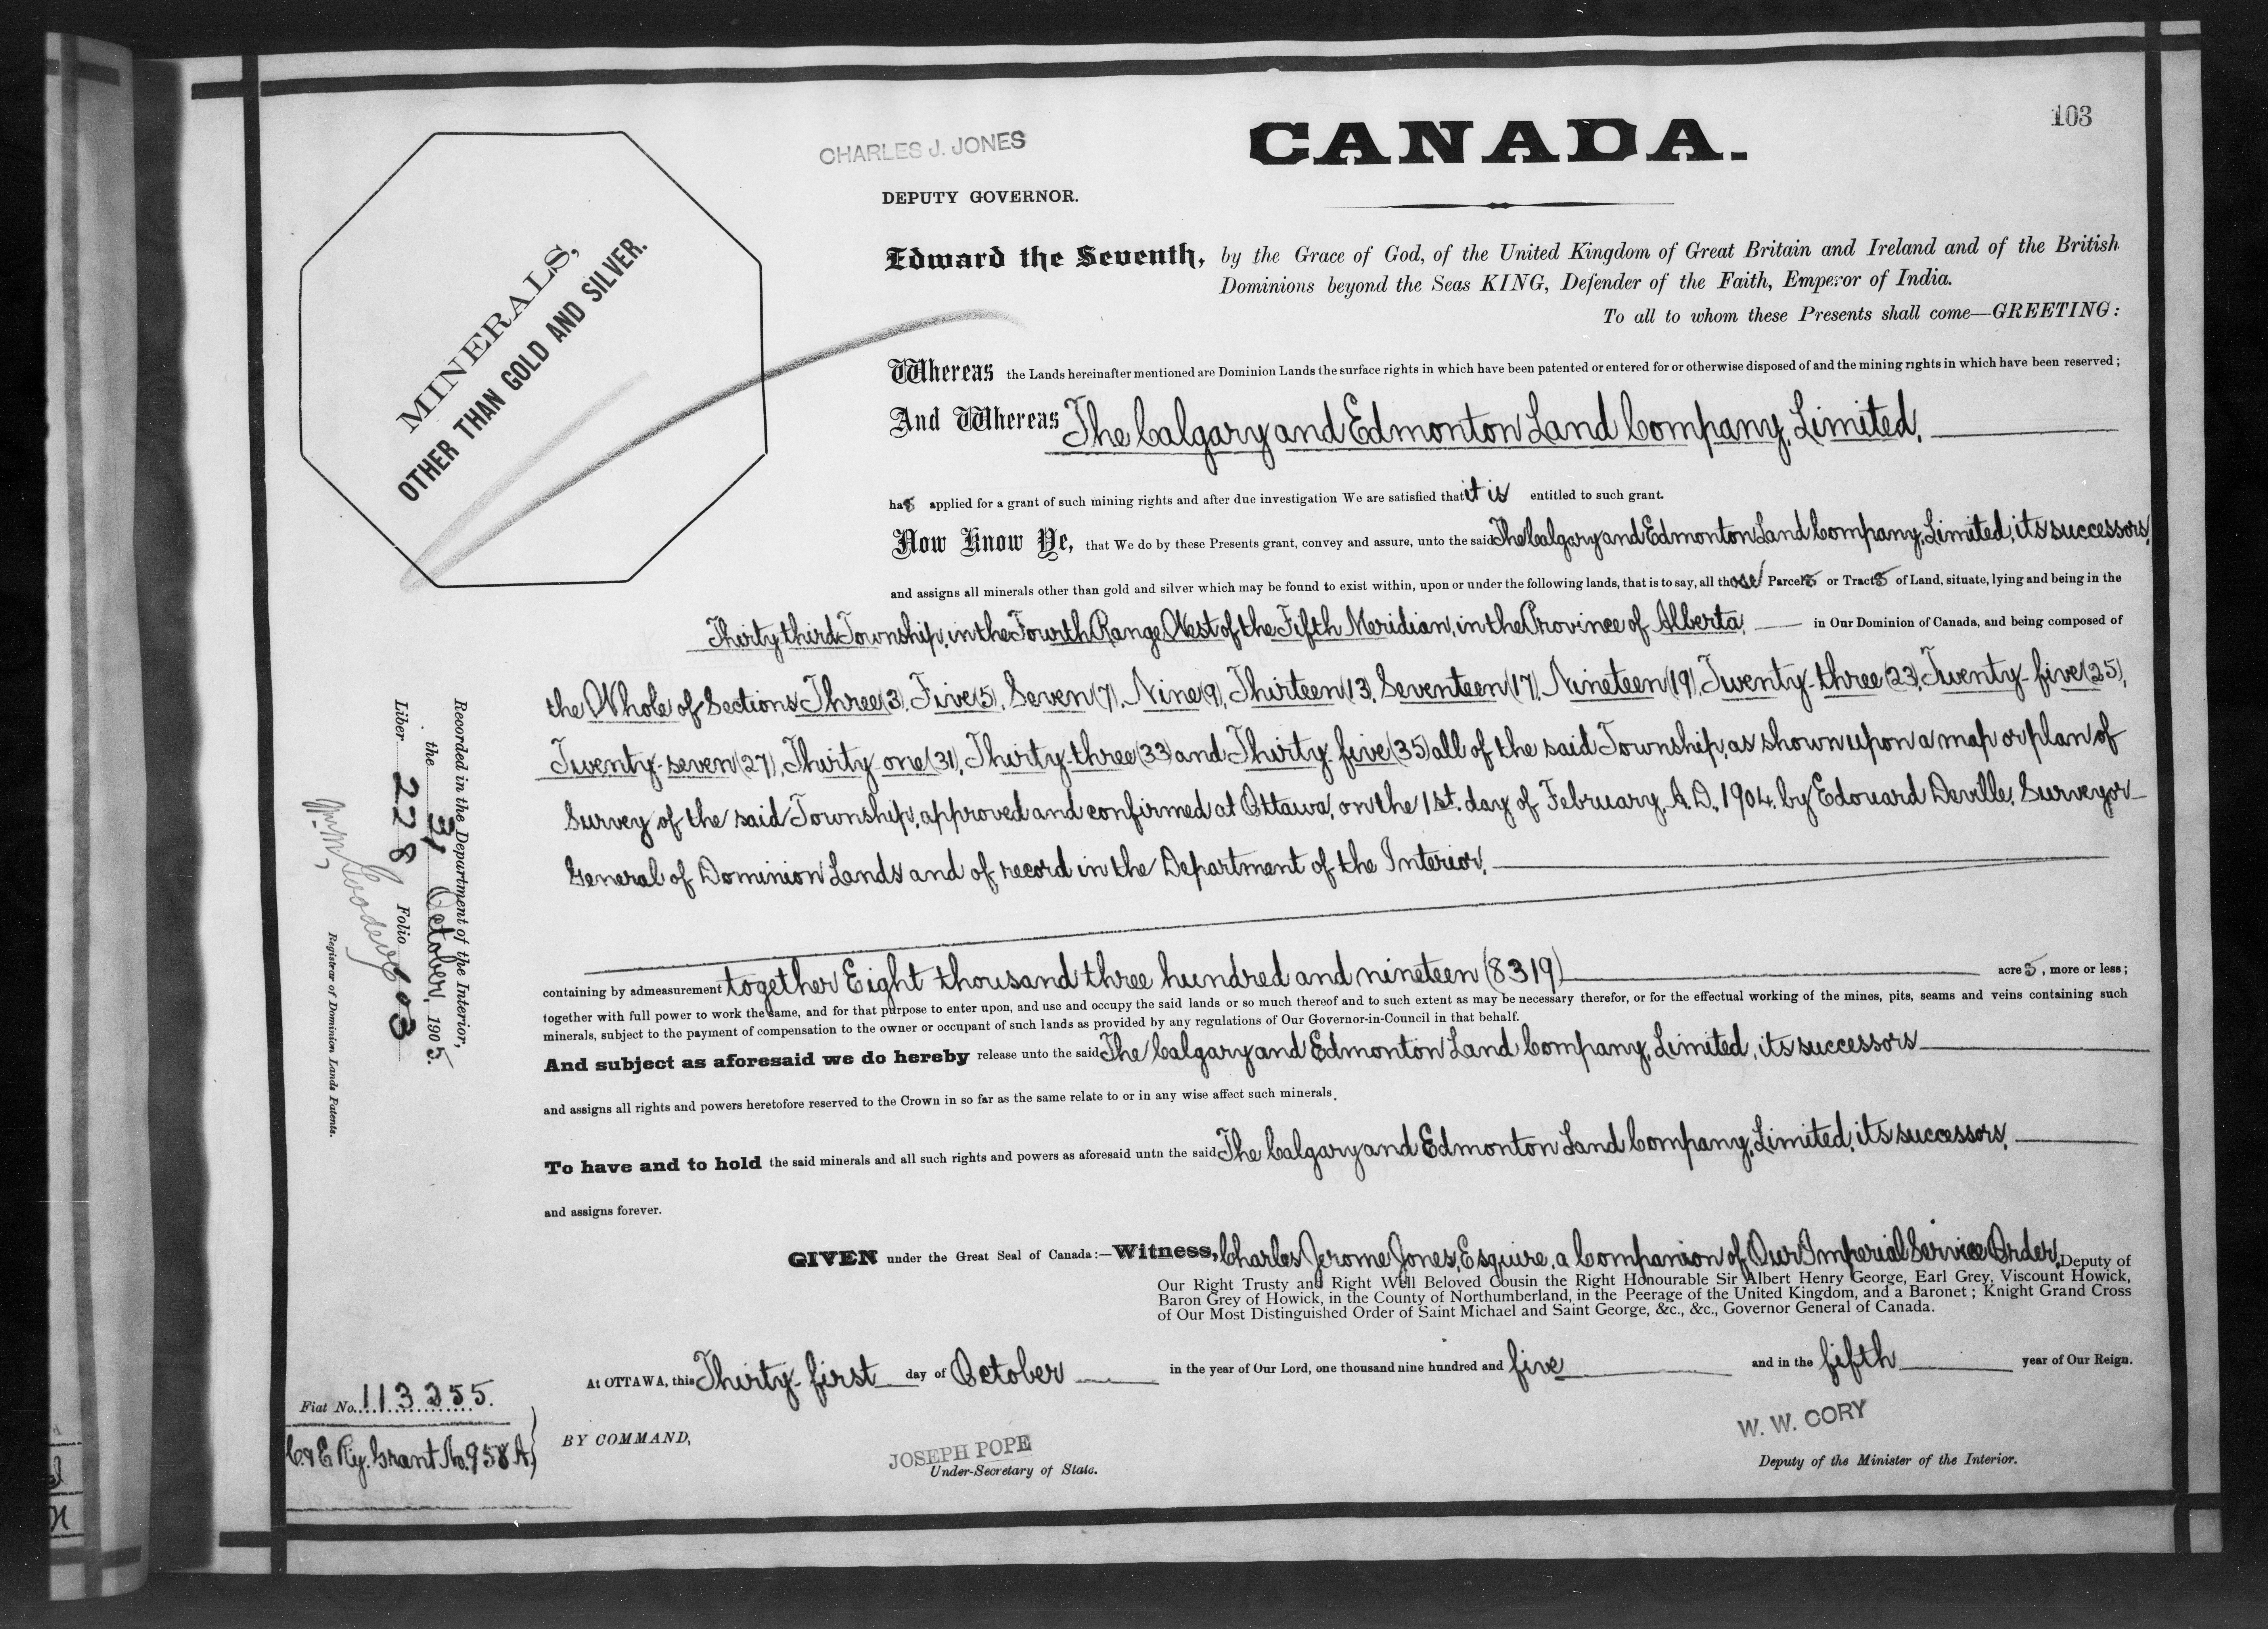 103
CHARLES J. JONES
CANADA.
DEPUTY GOVERNOR.
MINERALS,
OTHER THAN GOLD AND SILVER.
Edward the Seventh, by the Grace of God, of the United Kingdom of Great Britain and Ireland and of the British
Dominions beyond the Seas KING, Defender of the Faith, Emperor of India.
To all to whom these Presents shall come—GREETING:
Whereas the Lands hereinafter mentioned are Dominion Lands the surface rights in which have been patented or entered for or otherwise disposed of and the mining rights in which have been reserved;
And Whereas The Calgary and Edmonton Land Company, Limited,
has applied for a grant of such mining rights and after due investigation We are satisfied that it is entitled to such grant.
Now Know Ye, that We do by these Presents grant, convey and assure, unto the said The Calgary and Edmonton Land Company, Limited, its successors,
and assigns all minerals other than gold and silver which may be found to exist within, upon or under the following lands, that is to say, all those Parcels or Tracts of Land, situate, lying and being in the
Thirty third Township, in the Fourth Range West of the Fifth Meridian, in the Province of Alberta, in Our Dominion of Canada, and being composed of
the Whole of Sections Three (3), Five (5), Seven (7), Nine (9), Thirteen (13, Seventeen (17), Nineteen (19), Twenty-three (23, Twenty-five (25),
Twenty-seven (27), Thirty-one (31), Thirty-three (33) and Thirty-five (35) all of the said Township, as shown upon a map or plan of
Survey of the said Township, approved and confirmed at Ottawa, on the 1st. day of February, A.D., 1904, by Edouard Deville, Surveyor-
General of Dominion Lands and of record in the Department of the Interior,
containing by admeasurement together Eight thousand three hundred and nineteen (8319) acres, more or less;
together with full power to work the same, and for that purpose to enter upon, and use and occupy the said lands or so much thereof and to such extent as may be necessary therefor, or for the effectual working of the mines, pits, seams and veins containing such
minerals, subject to the payment of compensation to the owner or occupant of such lands as provided by any regulations of Our Governor-in-Council in that behalf.
And subject as aforesaid we do hereby release unto the said The Calgary and Edmonton Land Company, Limited, its successors
and assigns all rights and powers heretofore reserved to the Crown in so far as the same relate to or in any wise affect such minerals.
To have and to hold the said minerals and all such rights and powers as aforesaid untn the said The Calgary and Edmonton Land Company, Limited, its successors,
and assigns forever.
GIVEN under the Great Seal of Canada:—Witness, Charles Jerome Jones, Esquire, a Companion of Our Imperial Service Order, Deputy of
Our Right Trusty and Right Well Beloved Cousin the Right Honourable Sir Albert Henry George, Earl Grey, Viscount Howick,
Baron Grey of Howick, in the County of Northumberland, in the Peerage of the United Kingdom, and a Baronet; Knight Grand Cross
of Our Most Distinguished Order of Saint Michael and Saint George, &c., &c., Governor General of Canada.
At OTTAWA, this Thirty-first day of October in the year of Our Lord, one thousand nine hundred and five and in the fifth year of Our Reign.
BY COMMAND,
JOSEPH POPE
Under-Secretary of State.
W. W. CORY
Deputy of the Minister of the Interior.
Fiat No. 113255.
C. & E Ry. Grant No. 958 A.
Recorded in the Department of the Interior,
the 31 October, 1905.
Liber 228 Folio 103
Registrar of Dominion Lands Patents.